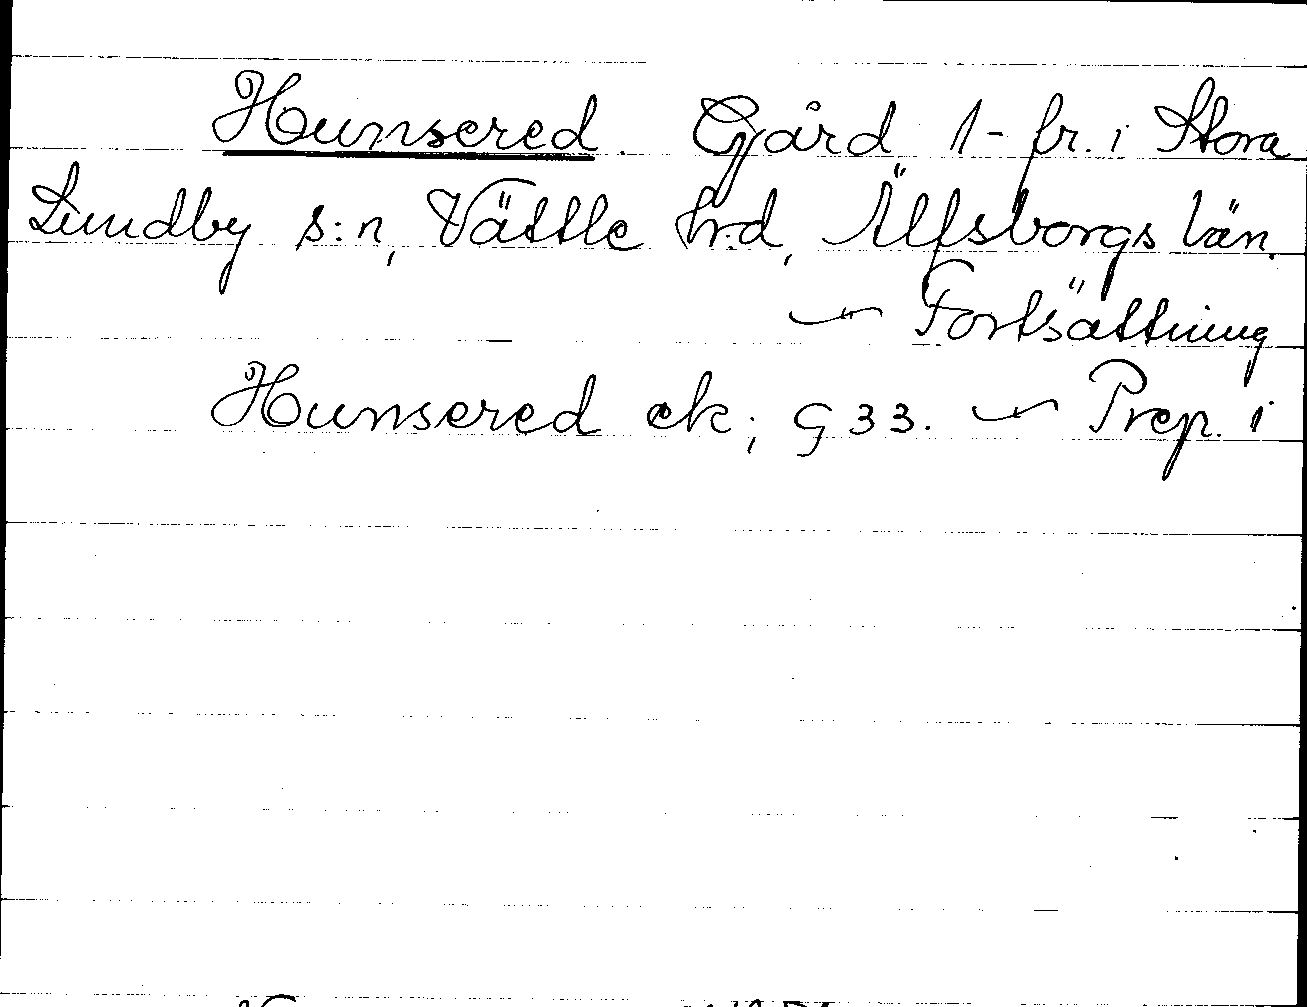 Hunsered. Gård, 1- fr. i Stora
Lundby s:n, Vättle hrd, Älfsborgs län.
— Fortsättning
Hunsered ek; G 33. — Prep. i